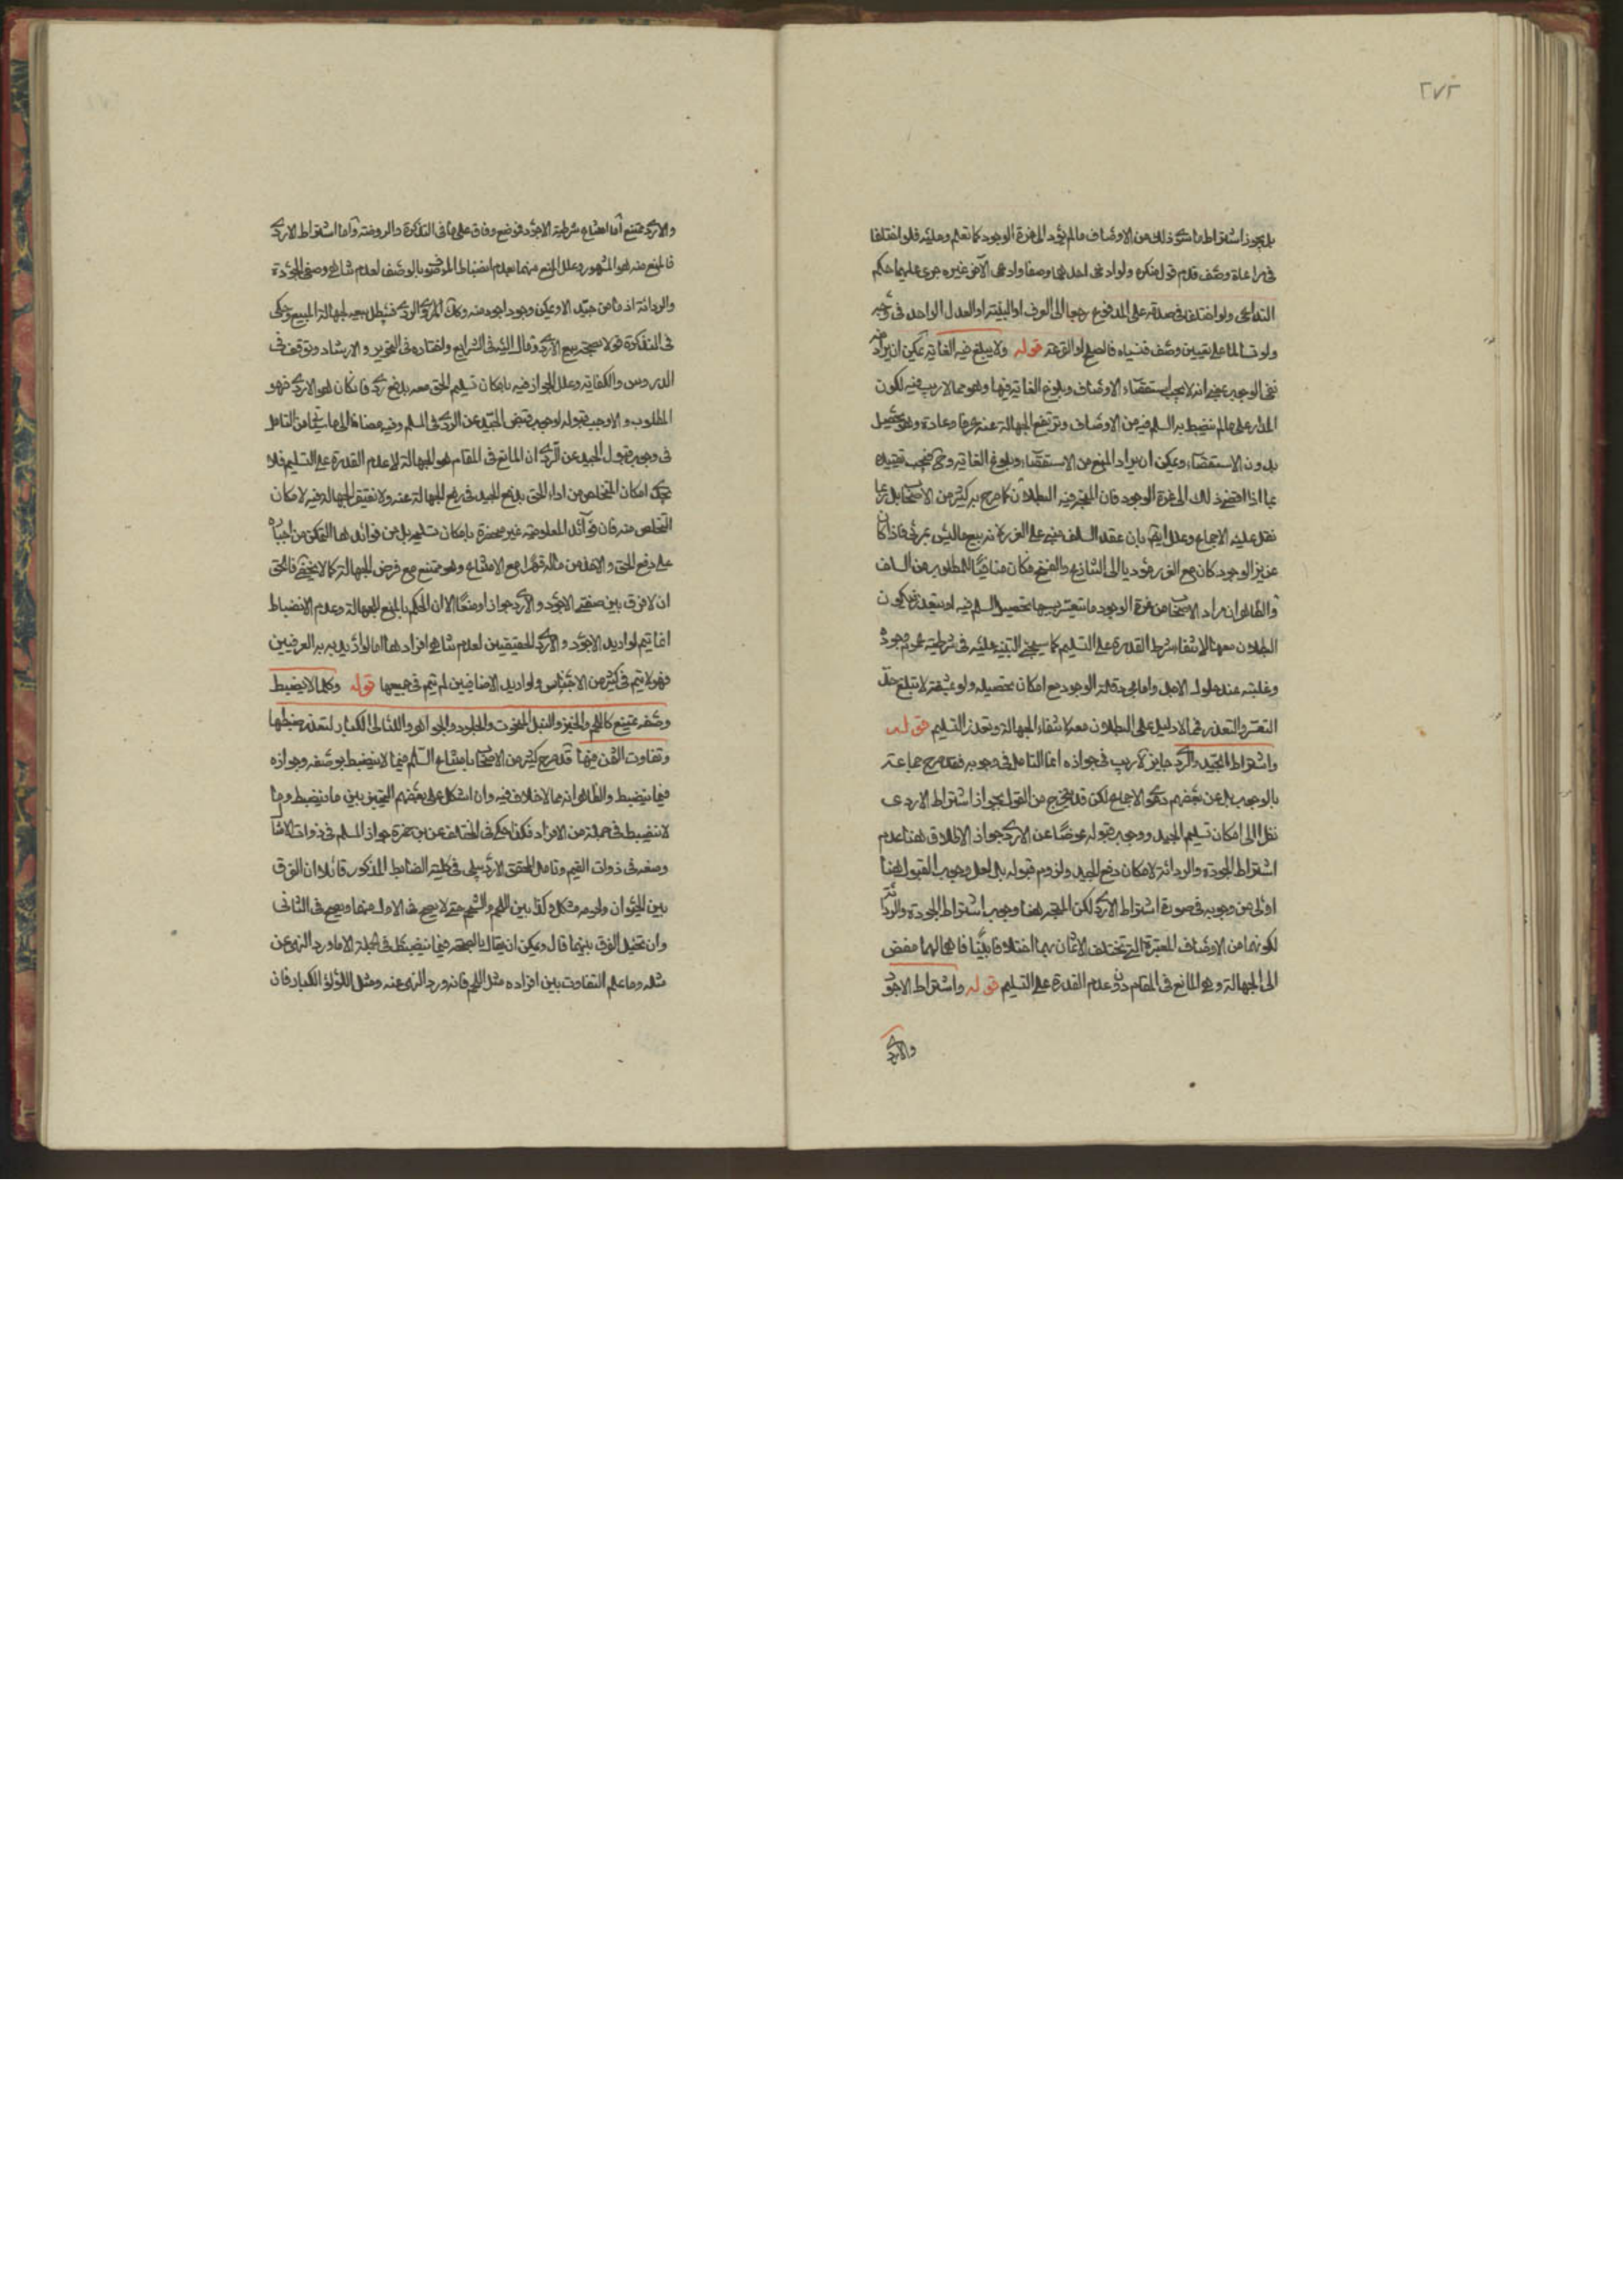 ٢٧٢
بل يجوز اشتراط ما سوى ذلك من الاوصاف ما لم يؤد الى عزة الوجود كما تعلم وعليه فلو اختلفا
في مراعاة وصف قدم قول منكره ولو ادعى احدهما وصفا وادعى الآخر غيره جرى عليهما حكم
التداعى ولو اختلفا في صدقه على المدفوع رجعا الى العرف او البينة او العدل الواحد في وجه
ولو تسالما على تعيين وصف فنسياه فالصلح او القرعة قوله ولا يبلغ فيه الغاية يمكن ان يراد منه
نفى الوجوب بمعنى انه لا يجب استقصاء الاوصاف وبلوغ الغاية فيها وهو مما لا ريب فيه لكون
المدار على ما ينضبط به المسلم فيه من الاوصاف وترتفع الجهالة عنه عرفا وعادة وهو يحصل
بدون الاستقصاء ويمكن ان يراد المنع من الاستقصاء وبلوغ الغاية وح فيجب تقييده
بما اذا افضى ذلك الى عزة الوجود فان المتجه فيه البطلان كما صرح به كثير من الاصحاب بل ربما
نقل عليه الاجماع وعلل ايضا بان عقد السلف مبنى على الغرر لانه بيع ما ليس بمرئى فاذا كان
عزيز الوجود كان مع الغرر مؤديا الى التنازع والفسخ فكان منافيا للمطلوب من السلف
والظاهر ان مراد الاصحاب من عزة الوجود ما يتعسر بسببها تحصيل المسلم فيه او يتعذر فيكون
البطلان معها لانتفاء شرط القدرة على التسليم كما سيجئ التنبيه عليه في شرطية عموم وجوده
وغلبته عند حلول الاجل واما مجرد قلة الوجود مع امكان تحصيله ولو بمشقة لا تبلغ حد
التعسر والتعذر فما لا دليل على البطلان معه لانتفاء الجهالة وتعذر التسليم قوله
واشتراط الجيد والردى جايز لا ريب في جوازه انما التامل في وجوبه فقد صرح جماعة
بالوجوب بل عن بعضهم دعوى الاجماع لكن قد يخرج من القول بجواز اشتراط الاردى
نظرا الى امكان تسليم الجيد ووجوب قبوله عوضا عن الاردى جواز الاطلاق هنا وعدم
اشتراط الجودة والردائة لامكان دفع الجيد ولزوم قبوله بل لعل وجوب القبول هنا
اولى من وجوبه في صورة اشتراط الاردى لكن المتجه هنا وجوب اشتراط الجودة والردائة
لكونهما من الاوصاف المعتبرة التى تختلف الاثمان بهما اختلافا بينا فاهمالهما مفض
الى الجهالة وهى المانع في المقام دون عدم القدرة على التسليم قوله واشتراط الاجود
والاردى
والاردى ممتنع اما امتناع شرطية الاجود فموضع وفاق على ما في التذكرة والروضة واما اشتراط الاردى
فالمنع منه هو المشهور وعلل المنع منهما بعدم انضباط الموصوف بالوصف لعدم تناهى وصفى الجودة
والردائة اذ ما من جيد الا ويمكن وجود اجود منه وكذا الردى فيبطل بيعه لجهالة المبيع وحكى
في التذكرة قولا بصحة بيع الاردى ومال اليه في الشرايع واختاره في التحرير والارشاد وتوقف في
الدروس والكفاية وعلل الجواز فيه بامكان تسليم الحق معه بدفع ردى فان كان هو الاردى فهو
المطلوب والا وجب قبوله لوجوب قبض الجيد عن الردى في السلم وفيه مضافا الى ما يتجه من التامل
في وجوب قبول الجيد عن الردى ان المانع في المقام هو الجهالة لا عدم القدرة على التسليم فلا
يجدى امكان التخلص من اداء الحق بدفع الجيد في رفع الجهالة عنه ولا تغتفر الجهالة فيه لامكان
التخلص منه فان فوائد المعلومية غير منحصرة بامكان تسليمه بل من فوائدها التمكن من اجباره
على دفع الحق والاخذ من ماله قهرا مع الامتناع وهو ممتنع مع فرض الجهالة كما لا يخفى فالحق
ان لا فرق بين صفتى الاجود والاردى جوازا ومنعا الا ان الحكم بالمنع للجهالة وعدم الانضباط
انما يتم لو اريد الاجود والاردى الحقيقيين لعدم تناهى افرادهما اما لو اريد به العرفيين
فهو لا يتم في كثير من الاجناس ولو اريد الاضافيين لم يتم في جميعها قوله وكلما لا يضبط
وصفه يمتنع كاللحم والخبز والنبل المنحوت والجلود والجواهر واللئالى الكبار لتعذر ضبطها
وتفاوت الثمن فيها قد صرح كثير من الاصحاب بامتناع السلم فيما لا ينضبط بوصفه وجوازه
فيما ينضبط والظاهر انه مما لا خلاف فيه وان اشكل على بعضهم التمييز بين ما ينضبط وما
لا ينضبط في جملة من الافراد فكما حكى في المختلف عن بن حمزة جواز السلم في ذوات الامثال
ومنعه في ذوات القيم وتامل المحقق الاردبيلى في كلية الضابط المذكور قائلا ان الفرق
بين الحيوان ولحمه مشكل وكذا بين اللحم والشحم حتى لا يصح في الاول منهما ويصح في الثانى
وان تخيل الفرق بينهما قال ويمكن ان يقال بالصحة فيما ينضبط في الجملة الا ما ورد النهى عن
مثله وما علم التفاوت بين افراده مثل اللحم فانه ورد النهى عنه ومثل اللؤلؤ الكبار فان